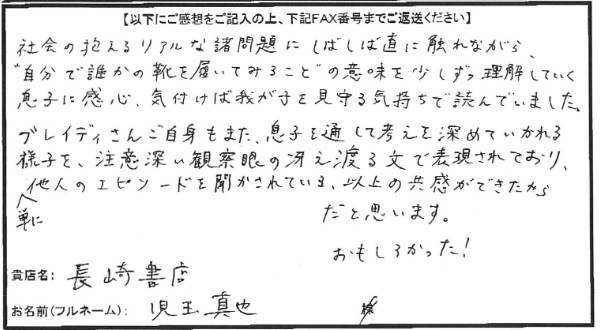 【以下にご感想をご記入の上、下記FAX番号までご返送ください】
社会の抱えるリアルな諸問題にしばしば直に触れながら、
"自分で誰かの靴を履いてみること"の意味を少しずつ理解していく
息子に感心、気付けば我が子を見守る気持ちで読んでいました。
ブレイディさんご自身もまた、息子を通して考えを深めていかれる
様子を、注意深い観察眼の冴え渡る文で表現されており、
単に他人のエピソードを聞かされている、以上の共感ができたから
だと思います。
おもしろかった!
貴店名: 長崎書店
お名前(フルネーム): 児玉真也 様